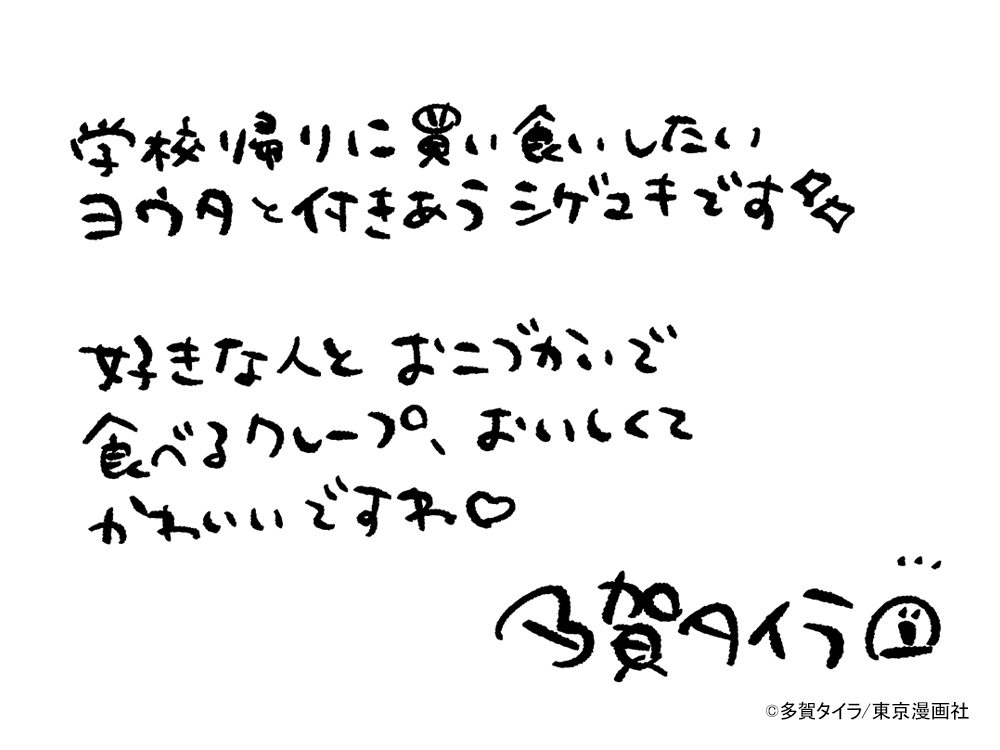 学校帰りに買い食いしたい
ヨウタと付きあうシゲユキです
好きな人とおこづかいで
食べるクレープ、おいしくて
かわいいですね♡
多賀タイラ
©多賀タイラ/東京漫画社